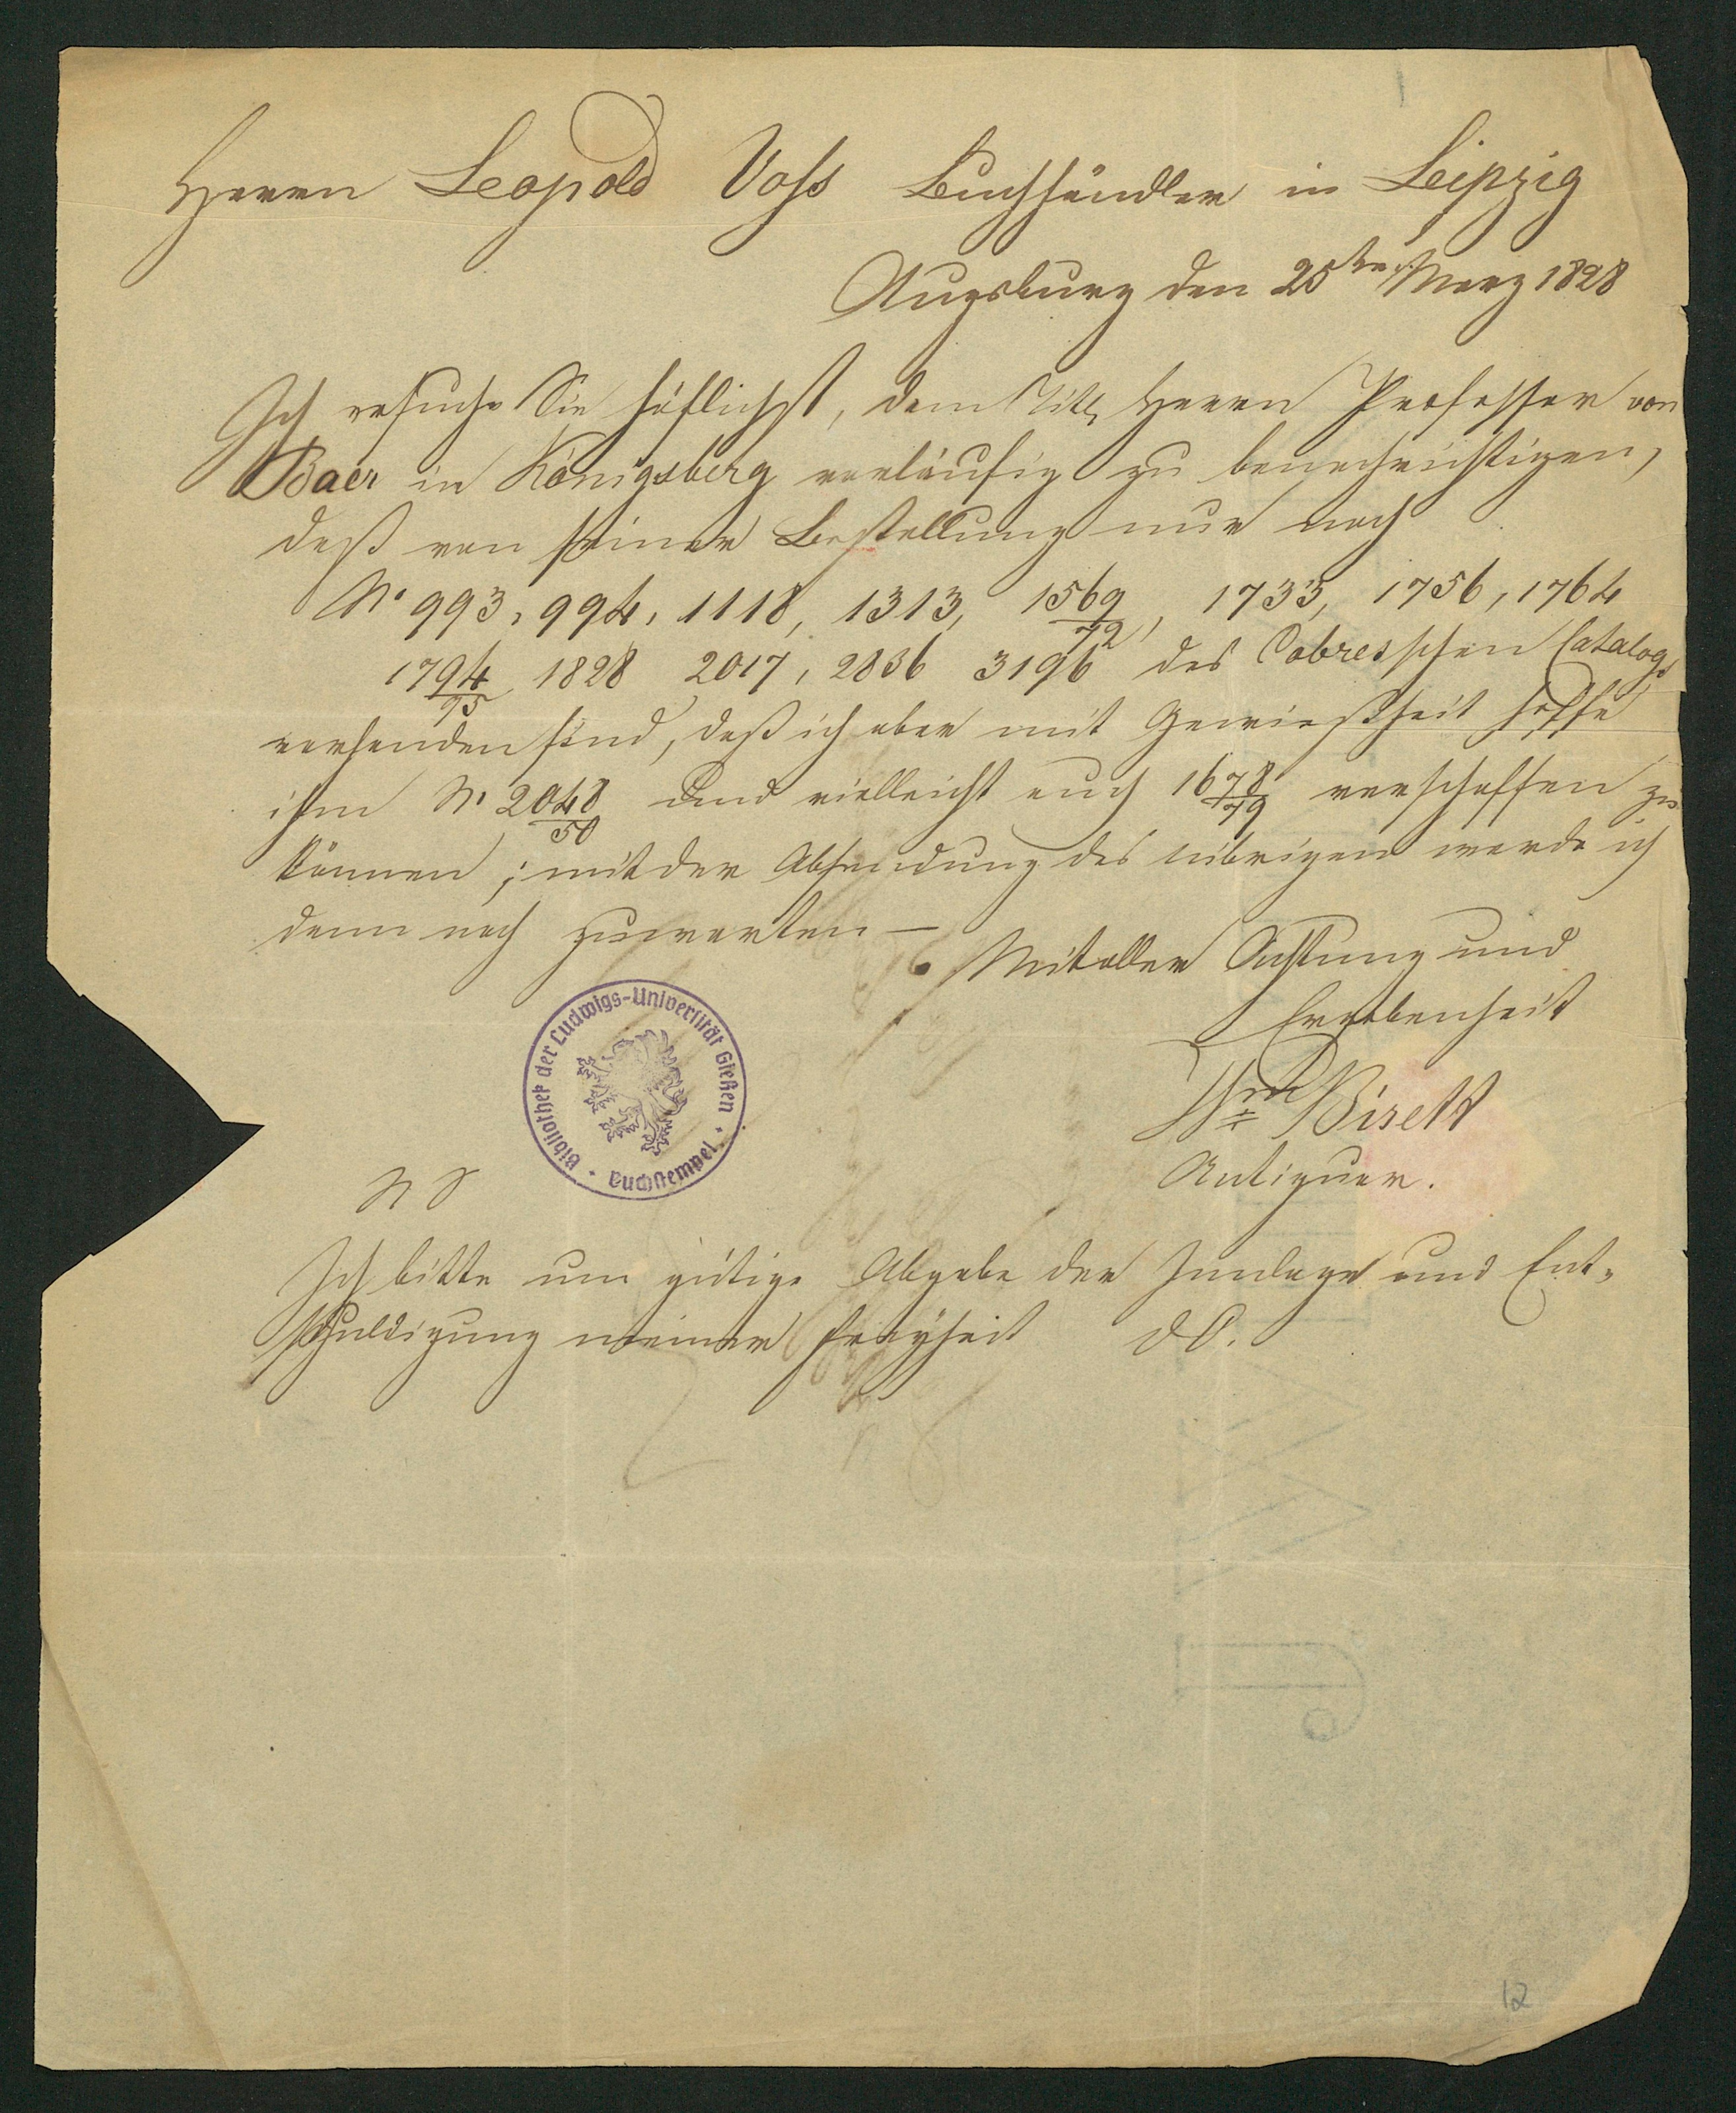 Herrn Leopold Voß Buchhändler in Leipzig
Augsburg den 25ten Merz 1828
Ich ersuche Sie höflichst, dem Titl Herrn Professor von
Baer in Königsberg vorläufig zu benachrichtigen,
daß von seiner Bestellung nur noch
No 993, 994, 1118, 1313, 1569/72, 1733, 1756, 1764
1794/95 1828 2017, 2836 3196 des Cobresschen Catalogs
vorhanden sind, daß ich aber mit Gewießheit hoffe
ihm No 2048/50 und vielleicht auch 1678/79 verschaffen zu
können; mit der Absendung des übrigen werde ich
dann noch zuwarten —
Mit aller Achtung und
Ergebenheit
Birett
Antiquar.
N S
Ich bitte um gütige Abgabe der Innlage und Ent-
schuldigung meiner Freyheit d O.
Bibliothek der Ludwigs-Universität Gießen · Buchstempel ·
12